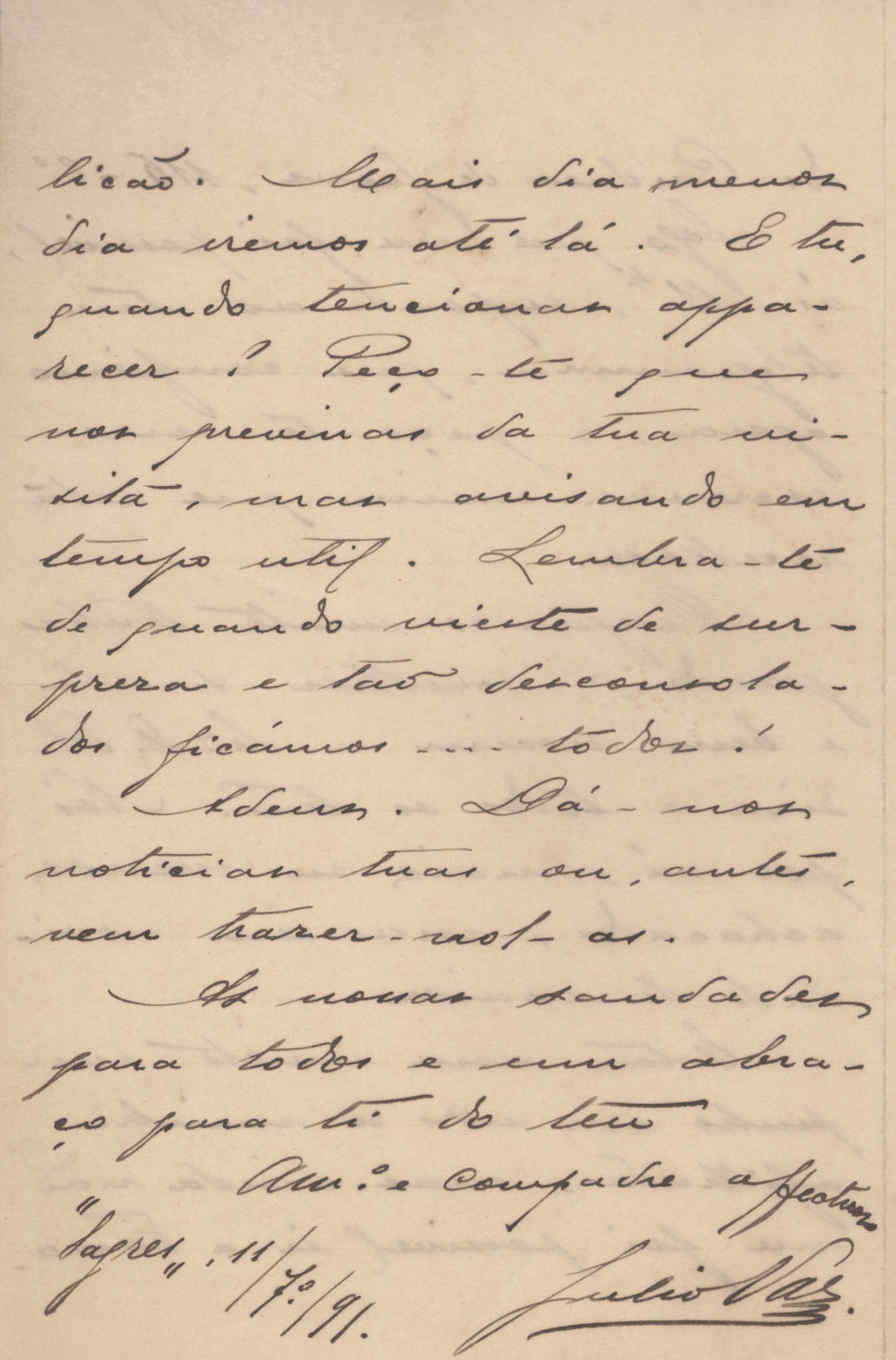 lição. Mais dia menos
dia iremos até lá. E tu,
quando tencionas appa-
recer? Peço-te que
nos previnas da tua vi-
sita, mas avisando em
tempo util. Lembra-te
de quando vieste de sur-
preza e tão desconsola-
dos ficámos.... todos!
Adeus. Dá-nos
noticias tuas ou, antes,
vem trazer-nol-as.
As nossas saudades
para todos e um abra-
ço para ti do teu
Am.º e compadre affectuoso
"Sagres„, 11/7º/91.
Julio Vaz.